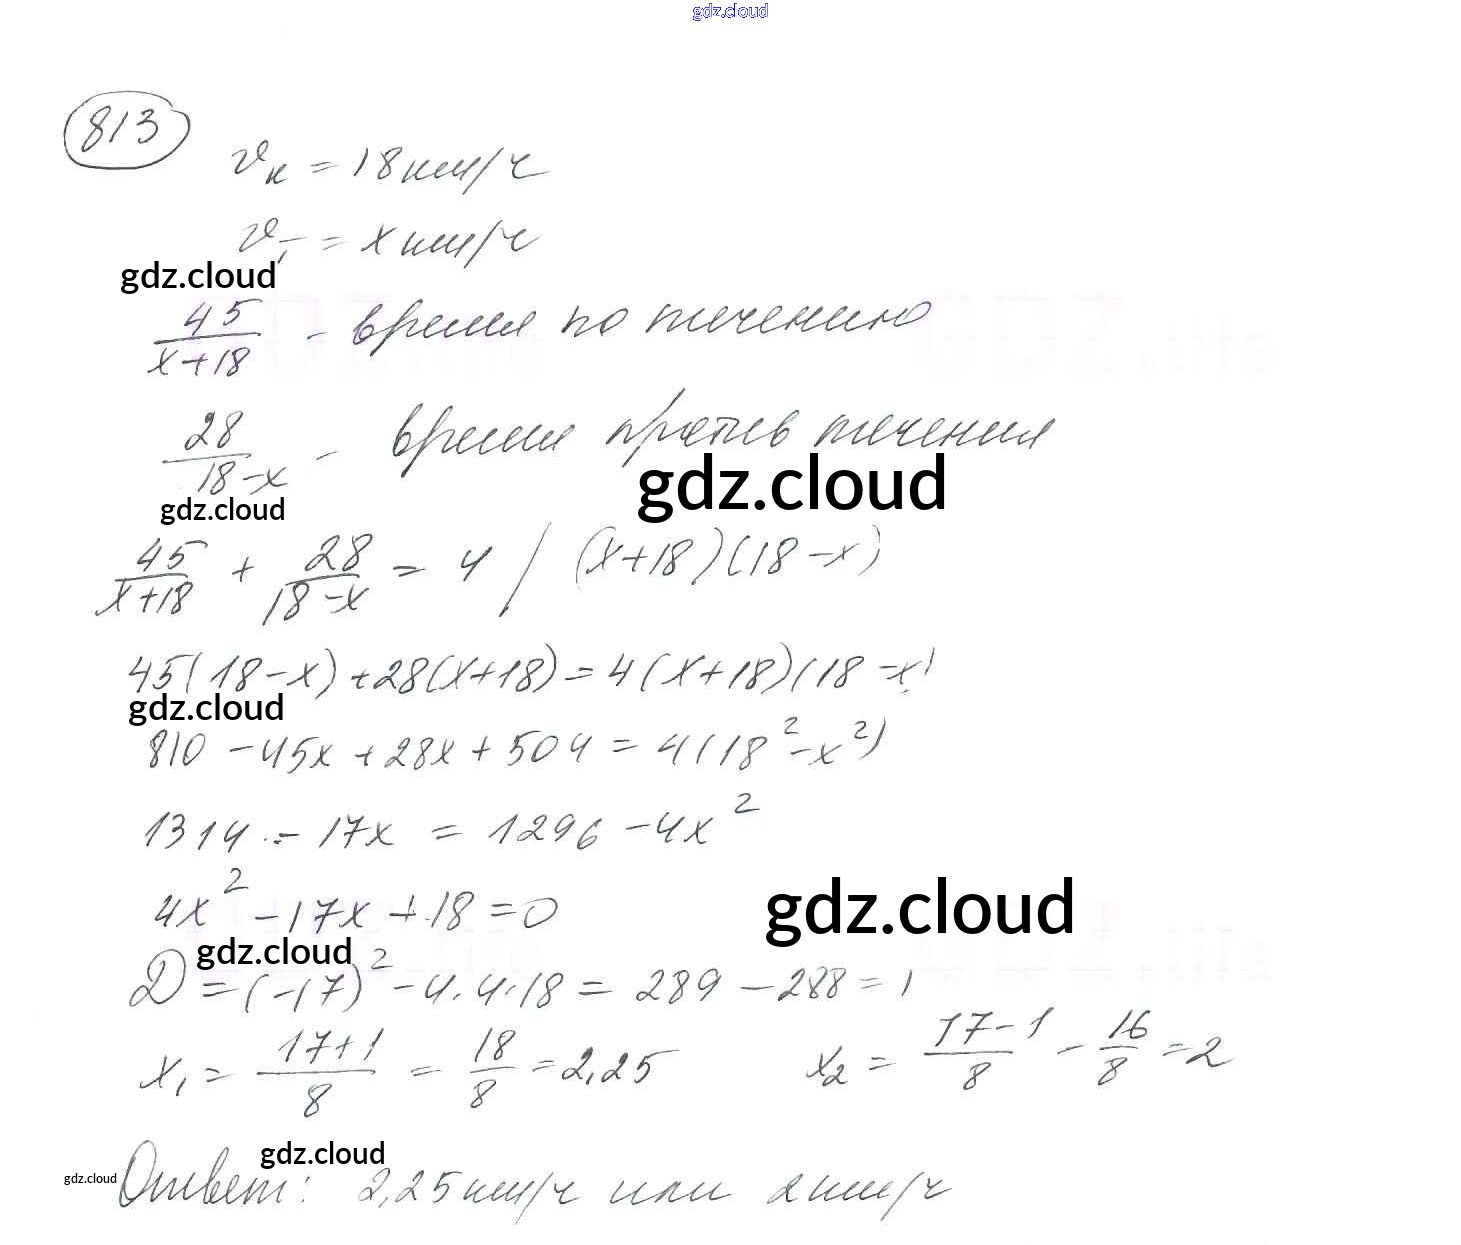 gdz.cloud
813
vк = 18 км/ч
vт = x км/ч
gdz.cloud
45/(x+18) - время по течению
28/(18-x) - время против течения
gdz.cloud
gdz.cloud
45/(x+18) + 28/(18-x) = 4 / (x+18)(18-x)
45(18-x)+28(x+18)=4(x+18)(18-x)
gdz.cloud
810-45x+28x+504=4(18²-x²)
1314-17x = 1296-4x²
4x²-17x+18=0
gdz.cloud
gdz.cloud
D=(-17)²-4·4·18=289-288=1
x₁ = (17+1)/8 = 18/8 = 2,25 x₂ = (17-1)/8 - 16/8 = 2
gdz.cloud
gdz.cloud
Ответ: 2,25 км/ч или 2 км/ч